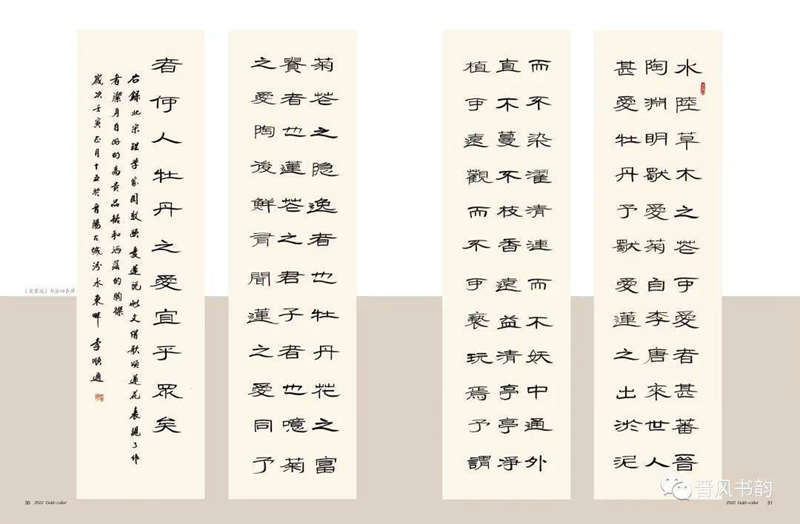 水陸草木之花可愛者甚蕃晉
陶淵明獨愛菊自李唐來世人
甚愛牡丹予獨愛蓮之出淤泥
而不染濯清漣而不妖中通外
直不蔓不枝香遠益清亭亭凈
植可遠觀而不可褻玩焉予謂
菊花之隱逸者也牡丹花之富
貴者也蓮花之君子者也噫菊
之愛陶後鮮有聞蓮之愛同予
者何人牡丹之愛宜乎眾矣
右錄北宋理學家周敦頤愛蓮說此文借歌頌蓮花表現了作
者潔身自好的高貴品格和灑落的胸襟
歲次壬寅正月十五於晉陽古城汾水東畔李順通
《爱莲说》书法四条屏
30 2022 Gold-collar
2022 Gold-collar 31
晋风书韵